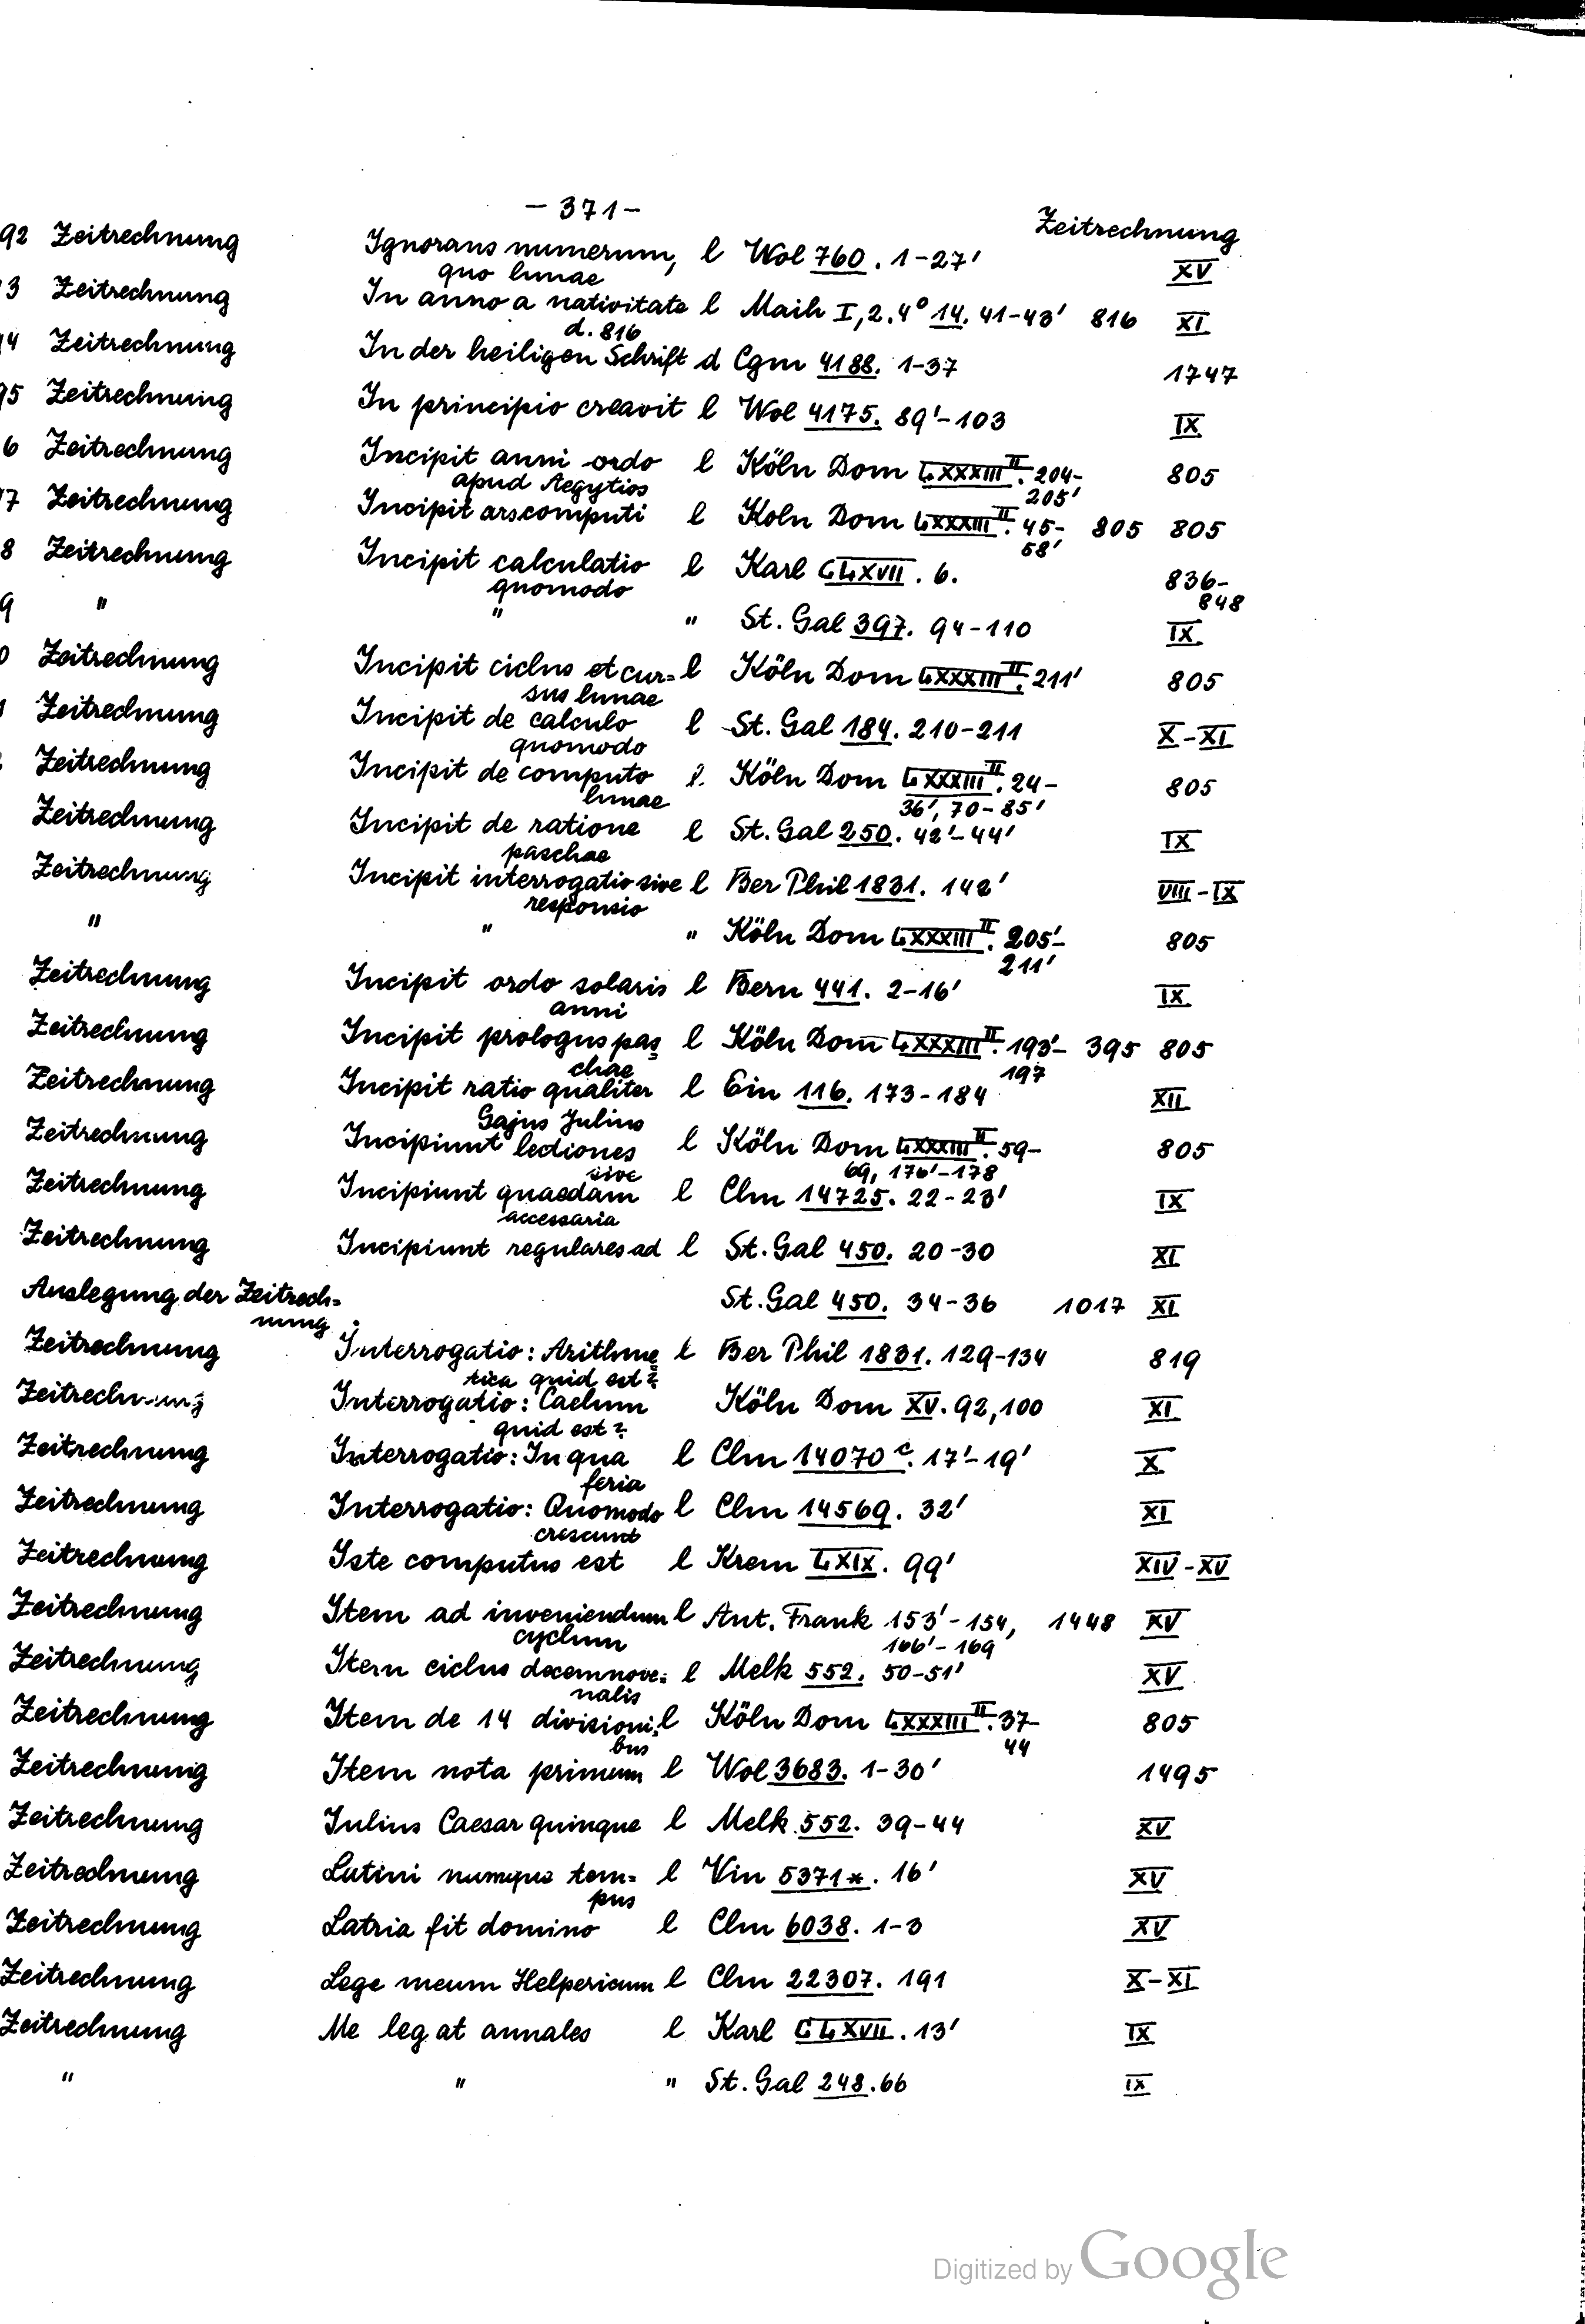 – 371 –
Zeitrechnung
92 Zeitrechnung Ignorans numerum, l Wol 760. 1-27' XV
quo lunae
3 Zeitrechnung In anno a nativitate l Maih I,2.4° 14. 41-43' 816 XI
d. 816
4 Zeitrechnung In der heiligen Schrift d Cgm 4188. 1-37 1747
95 Zeitrechnung In principio creavit l Wol 4175. 89'-103 IX
6 Zeitrechnung Incipit anni ordo l Köln Dom LXXXIII II. 204- 805
apud Aegytios 205'
7 Zeitrechnung Incipit ars computi l Koln Dom LXXXIII II. 45- 805 805
58'
8 Zeitrechnung Incipit calculatio l Karl CLXVII. 6. 836-
quomodo 848
9 " " " St. Gal 397. 94-110 IX
0 Zeitrechnung Incipit ciclus et cur= l Köln Dom LXXXIII II. 211' 805
sus lunae
Zeitrechnung Incipit de calculo l St. Gal 184. 210-211 X-XI
quomodo
Zeitrechnung Incipit de computo l. Köln Dom LXXXIII II. 24- 805
lunae 36', 70-85'
Zeitrechnung Incipit de ratione l St. Gal 250. 42'-44' IX
paschae
Zeitrechnung Incipit interrogatio sive l Ber Phil 1831. 142' VIII-IX
responsio
" " " Köln Dom LXXXIII II. 205'- 805
211'
Zeitrechnung Incipit ordo solaris l Bern 441. 2-16' IX
anni
Zeitrechnung Incipit prologus pas= l Köln Dom LXXXIII II. 193'- 395 805
chae 197
Zeitrechnung Incipit ratio qualiter l Ein 116. 173-184 XII
Gajus Julius
Zeitrechnung Incipiunt lectiones l Köln Dom LXXXIII II. 59- 805
sive 69, 176'-178
Zeitrechnung Incipiunt quaedam l Clm 14725. 22-23' IX
accessaria
Zeitrechnung Incipiunt regulares ad l St. Gal 450. 20-30 XI
Auslegung der Zeitrech= St. Gal 450. 34-36 1017 XI
nung
Zeitrechnung Interrogatio: Arithme= l Ber Phil 1831. 129-134 819
tica quid est?
Zeitrechnung Interrogatio: Caelum Köln Dom XV. 92,100 XI
quid est?
Zeitrechnung Interrogatio: In qua l Clm 14070 c. 17'-19' X
feria
Zeitrechnung Interrogatio: Quomodo l Clm 14569. 32' XI
crescunt
Zeitrechnung Iste computus est l Krem LXIX. 99' XIV-XV
Zeitrechnung Item ad inveniendum l Ant. Frank 153'-154, 1448 XV
cyclum 166'-169
Zeitrechnung Item ciclus decemnove= l Melk 552. 50-51' XV
nalis
Zeitrechnung Item de 14 divisioni= l Köln Dom LXXXIII II. 37- 805
bus 44
Zeitrechnung Item nota primum l Wol 3683. 1-30' 1495
Zeitrechnung Iulius Caesar quinque l Melk 552. 39-44 XV
Zeitrechnung Lutini numque tem= l Vin 5371*. 16' XV
pus
Zeitrechnung Latria fit domino l Clm 6038. 1-3 XV
Zeitrechnung Lege meum Helpericum l Clm 22307. 191 X-XI
Zeitrechnung Me legat annales l Karl CLXVII. 13' IX
" " " St. Gal 248.66 IX
Digitized by Google